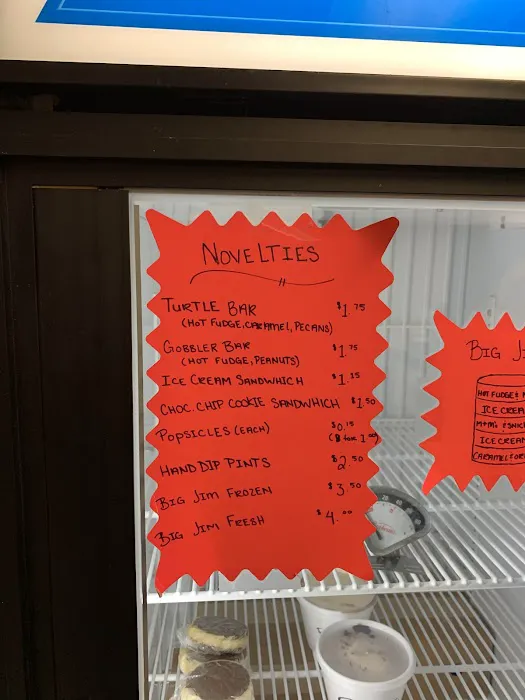 NOVELTIES
TURTLE BAR $1.75
(HOT FUDGE, CARAMEL, PECANS)
GOBBLER BAR $1.75
(HOT FUDGE, PEANUTS)
ICE CREAM SANDWHICH $1.15
CHOC. CHIP COOKIE SANDWHICH $1.50
POPSICLES (EACH) $0.15
HAND DIP PINTS $2.50
BIG JIM FROZEN $3.50
BIG JIM FRESH $4.00
BIG
HOT FUDGE
ICE
M+M's
ICE
CARAMEL